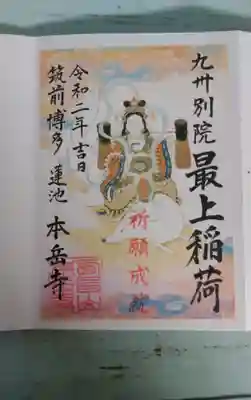 九州別院
最上稲荷
祈願成就
令和二年吉日
筑前博多 蓮池
本岳寺